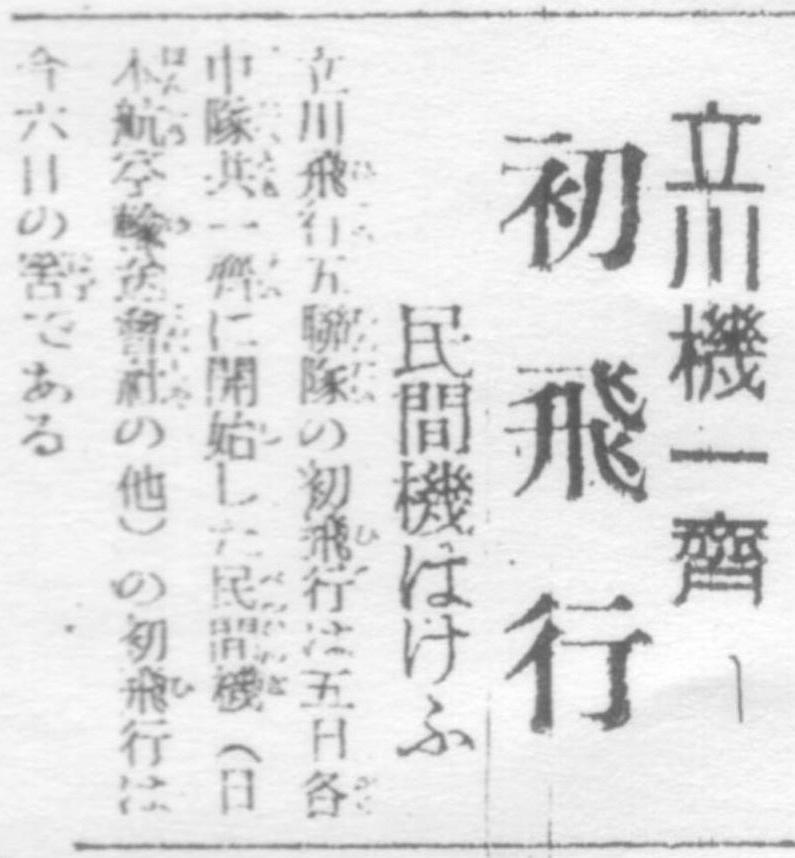 立川機一齊
初飛行
民間機はけふ
立川飛行五聯隊の初飛行は五日各
中隊共一齊に開始した民間機（日
本航空輸送會社の他）の初飛行は
今六日の筈である